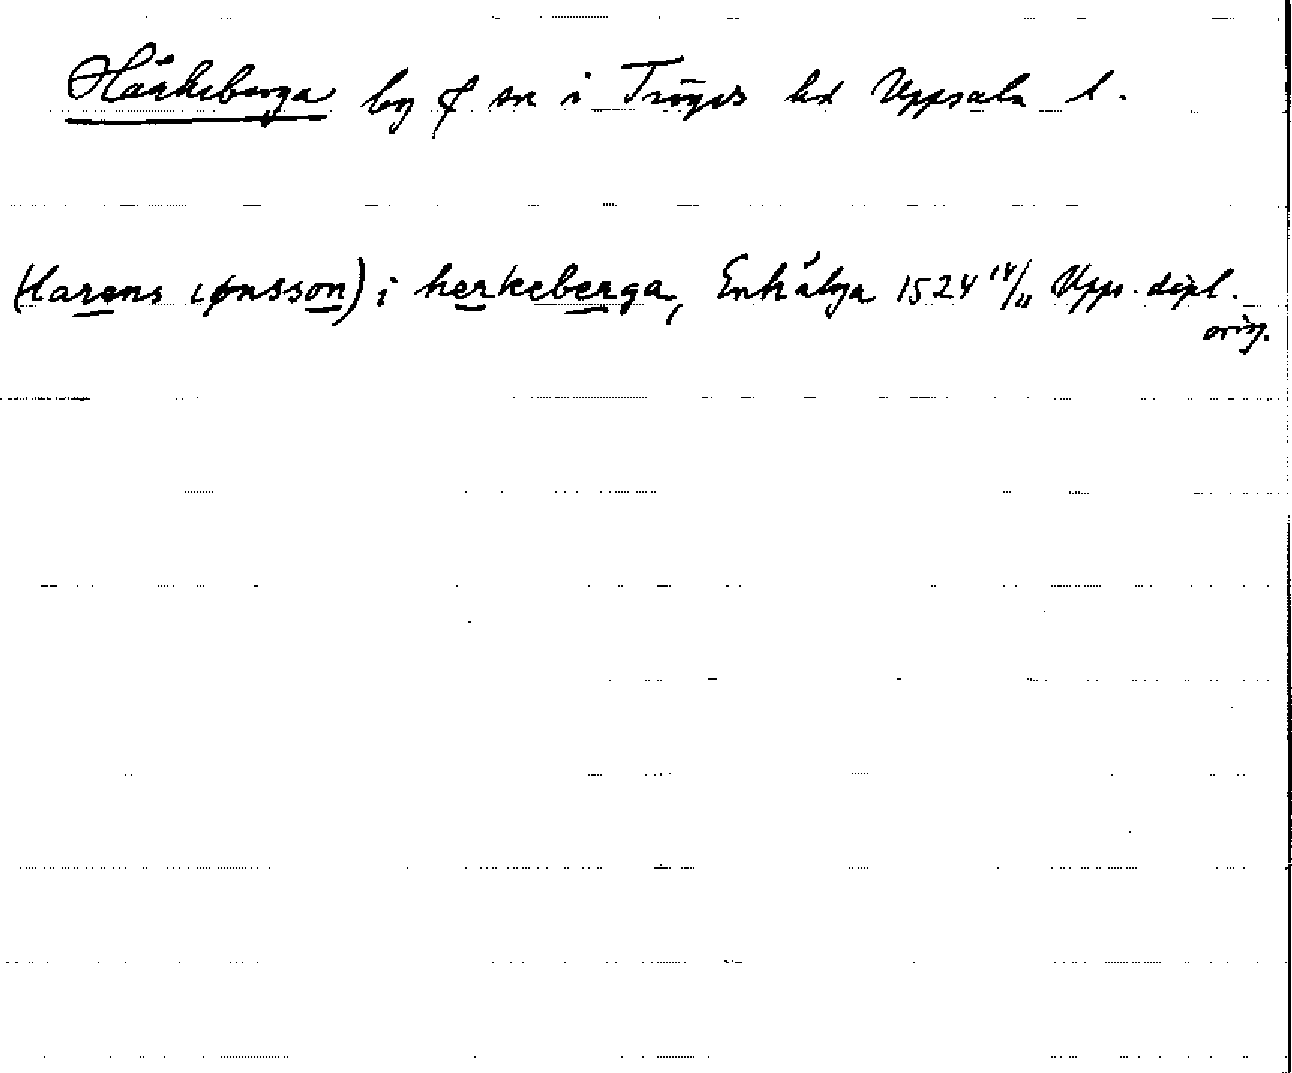 Härkeberga by o sn i Trögds hd Uppsala l.
(Larens iønsson) i herkeberga, Enkålnga 1524 14/11 Upps. dipl.
orig.